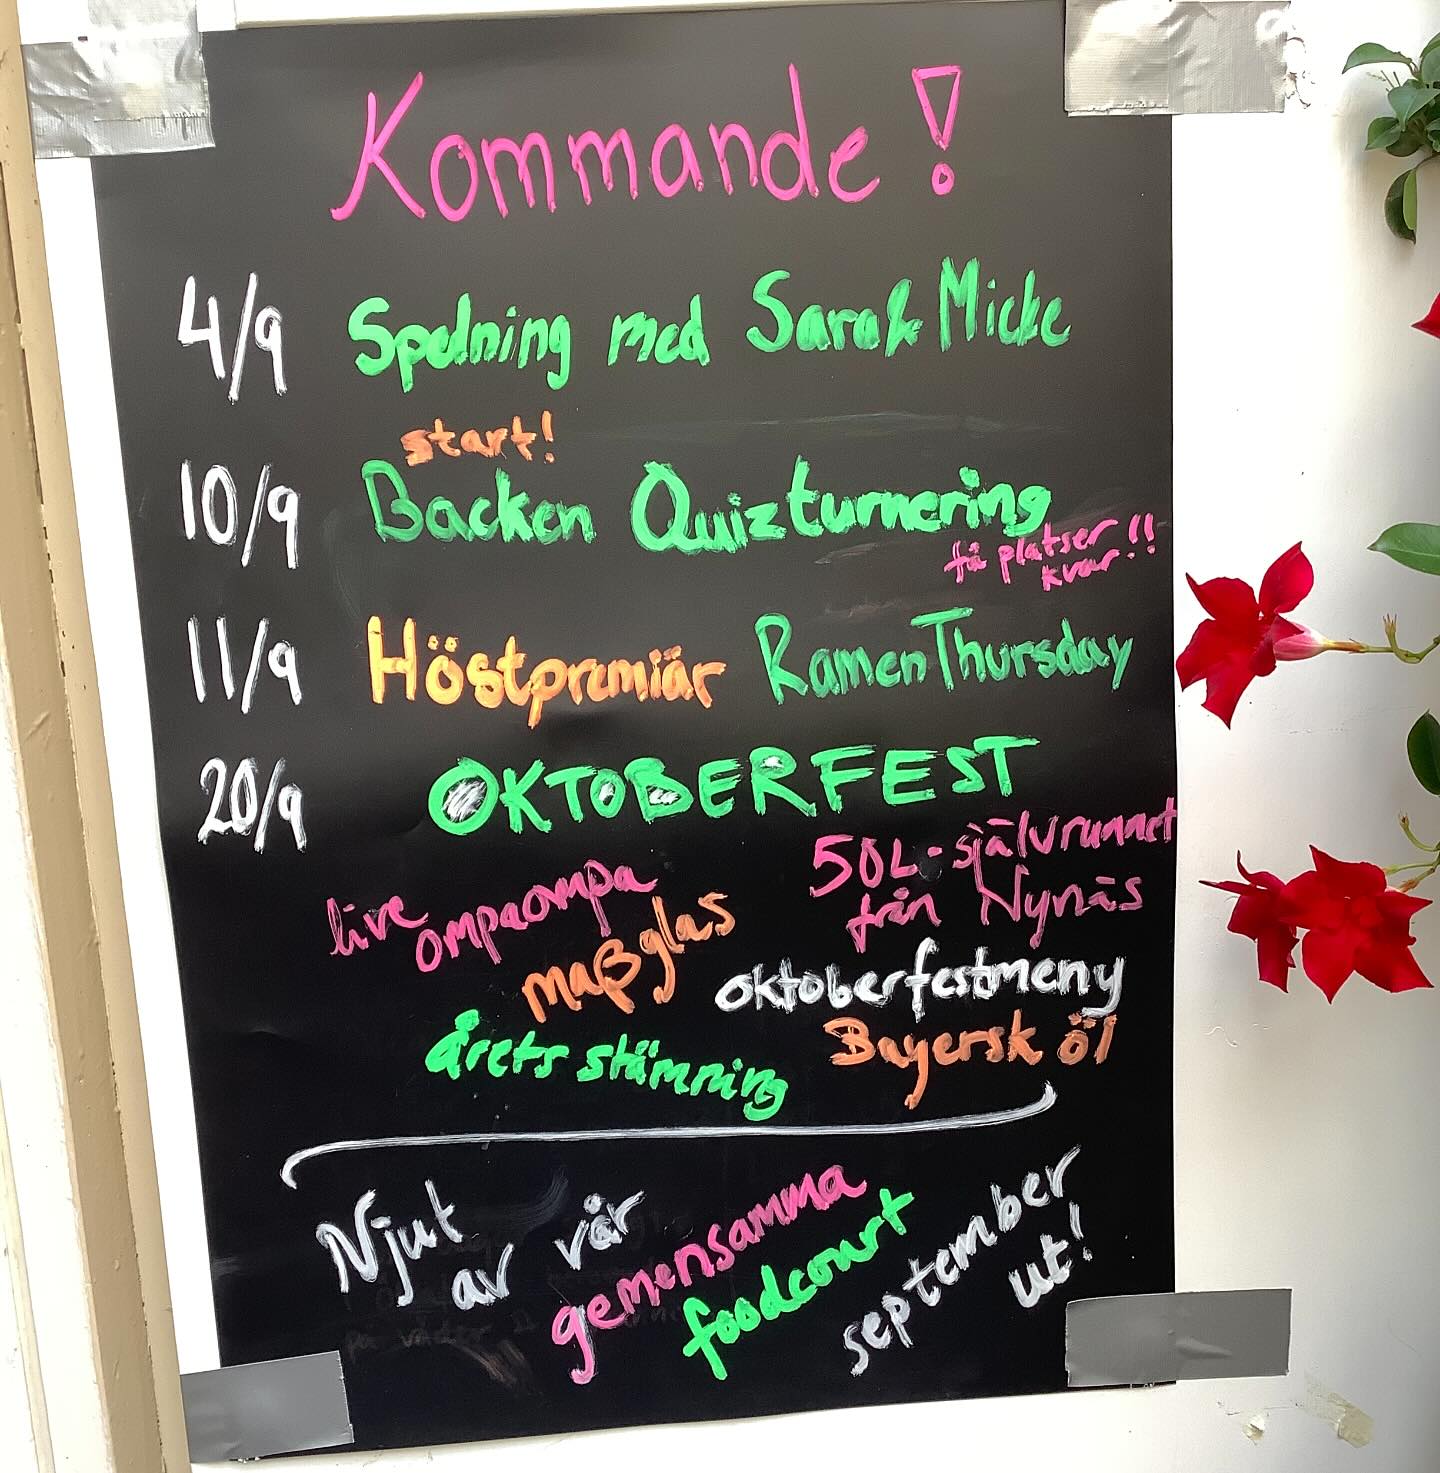 Kommande!
4/9 Spelning med Sara & Micke
start!
10/9 Backen Quizturnering
få platser kvar!!
11/9 Höstpremiär Ramen Thursday
20/9 OKTOBERFEST
50L-självrunnet
från Nynäs
live ompaompa
maßglas
oktoberfestmeny
årets stämning
Bayersk öl
Njut av vår gemensamma foodcourt september ut!